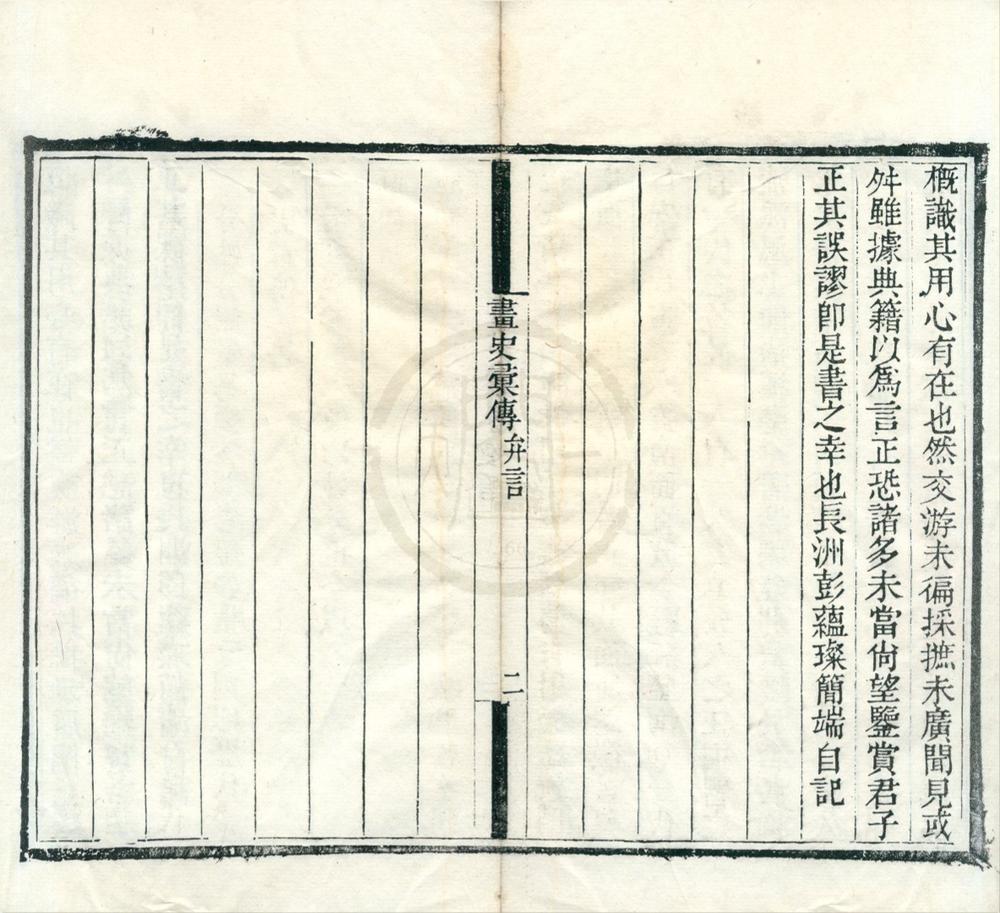 概識其用心有在也然交游未徧採摭未廣聞見或
舛雖據典籍以爲言正恐諸多未當尙望鑒賞君子
正其誤謬卽是書之幸也長洲彭蘊璨簡端自記
畫史彙傳 弁言
二